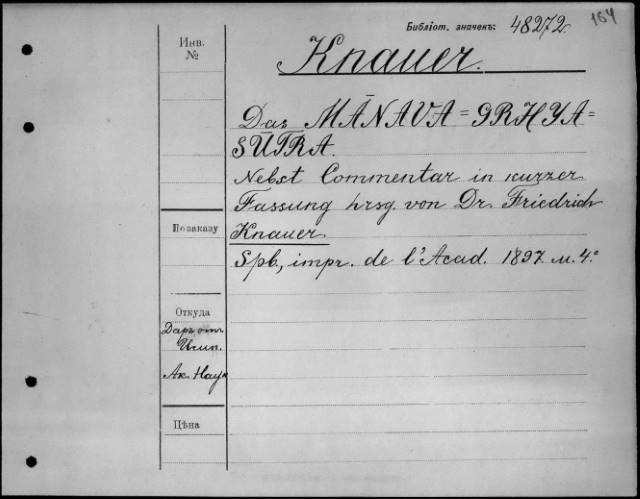 Библіот. значекъ: 48272. 164
Инв. №
Knauer.
Das MĀNAVA=GRHYA=
SŪTRA.
Nebst Commentar in kurzer
Fassung hrsg. von Dr. Friedrich
Knauer.
Spb., impr. de l'Acad. 1897. 4.º
По заказу
Откуда
Даръ отъ
Имп.
Ак. Наук
Цѣна